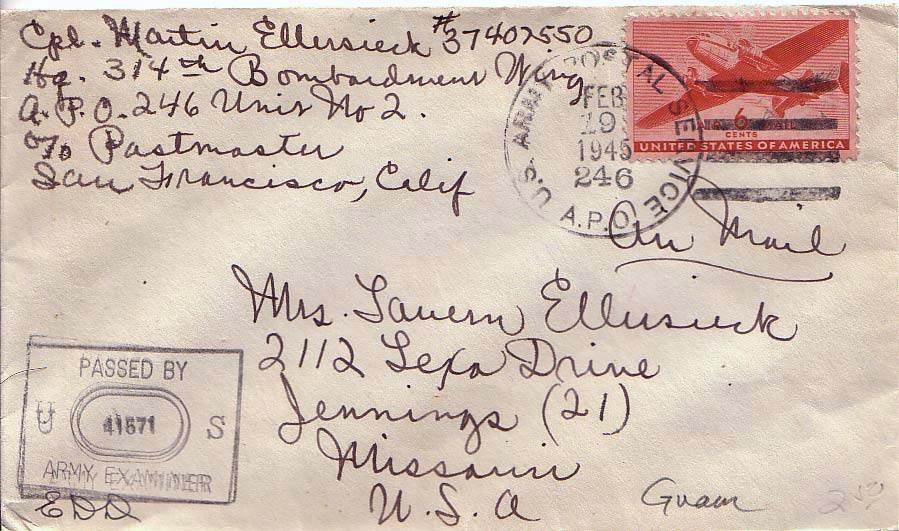 Cpl. Martin Ellersieck #37407550
Hq. 314th Bombardment Wing
A.P.O. 246 Unit No 2.
c/o Postmaster
San Francisco, Calif
U.S. ARMY POSTAL SERVICE
FEB
19
1945
246
A.P.O.
AIR MAIL
6
CENTS
UNITED STATES OF AMERICA
Air Mail
Mrs. Lavern Ellersieck
2112 Lexa Drive
Jennings (21)
Missouri
U.S.A
PASSED BY
U 41571 S
ARMY EXAMINER
Guam